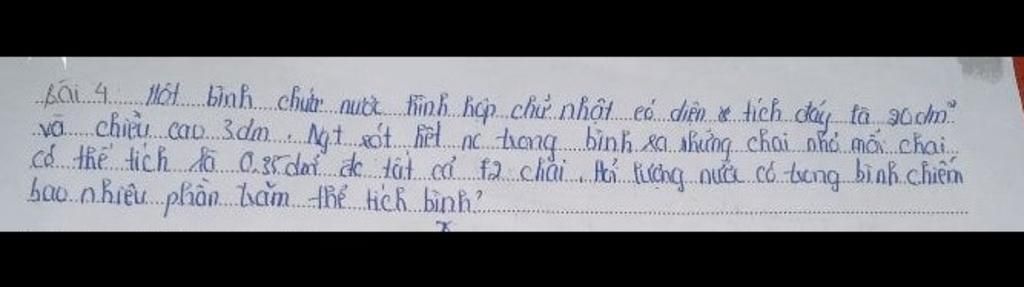 Bài 4 Một bình chứa nước hình hộp chữ nhật có diện tích đáy là 20dm²
và chiều cao 3dm. Ngt rót hết nc trong bình ra những chai nhỏ mỗi chai
có thể tích là 0.35dm³ đc tất cả 72 chai. Hỏi lượng nước có trong bình chiếm
bao nhiêu phần trăm thể tích bình?